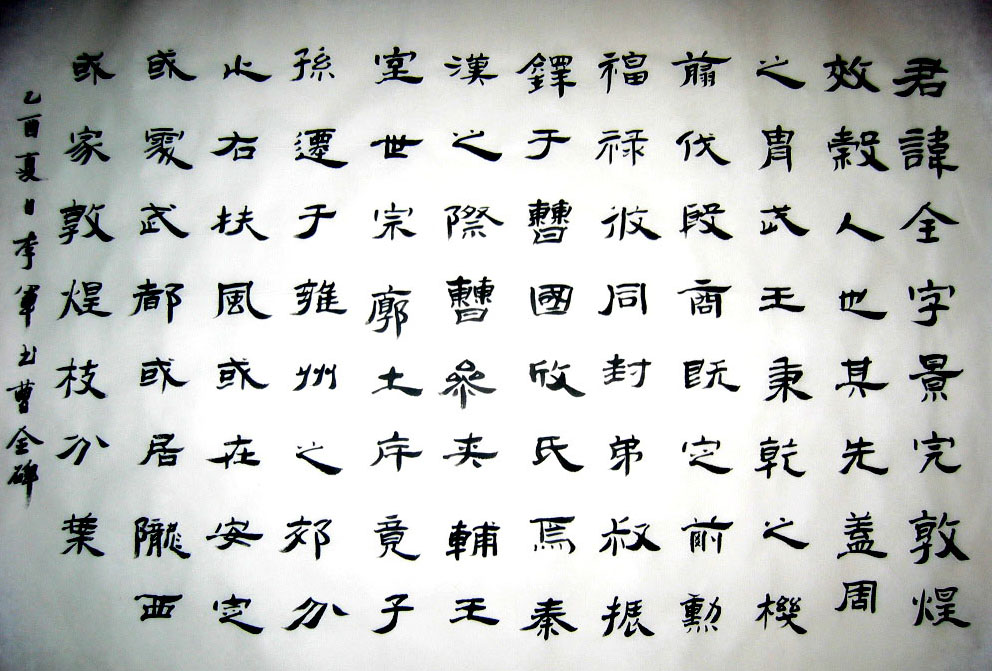 君諱全字景完敦煌
效穀人也其先蓋周
之胄武王秉乾之機
翦伐殷商既定前勳
福禄攸同封弟叔振
鐸于曹國攸氏焉秦
漢之際曹參夾輔王
室世宗廓土庠竟子
孫遷于雍州之郊分
止右扶風或在安定
或處武都或居隴西
或家敦煌枝分葉
乙酉夏日李軍书曹全碑